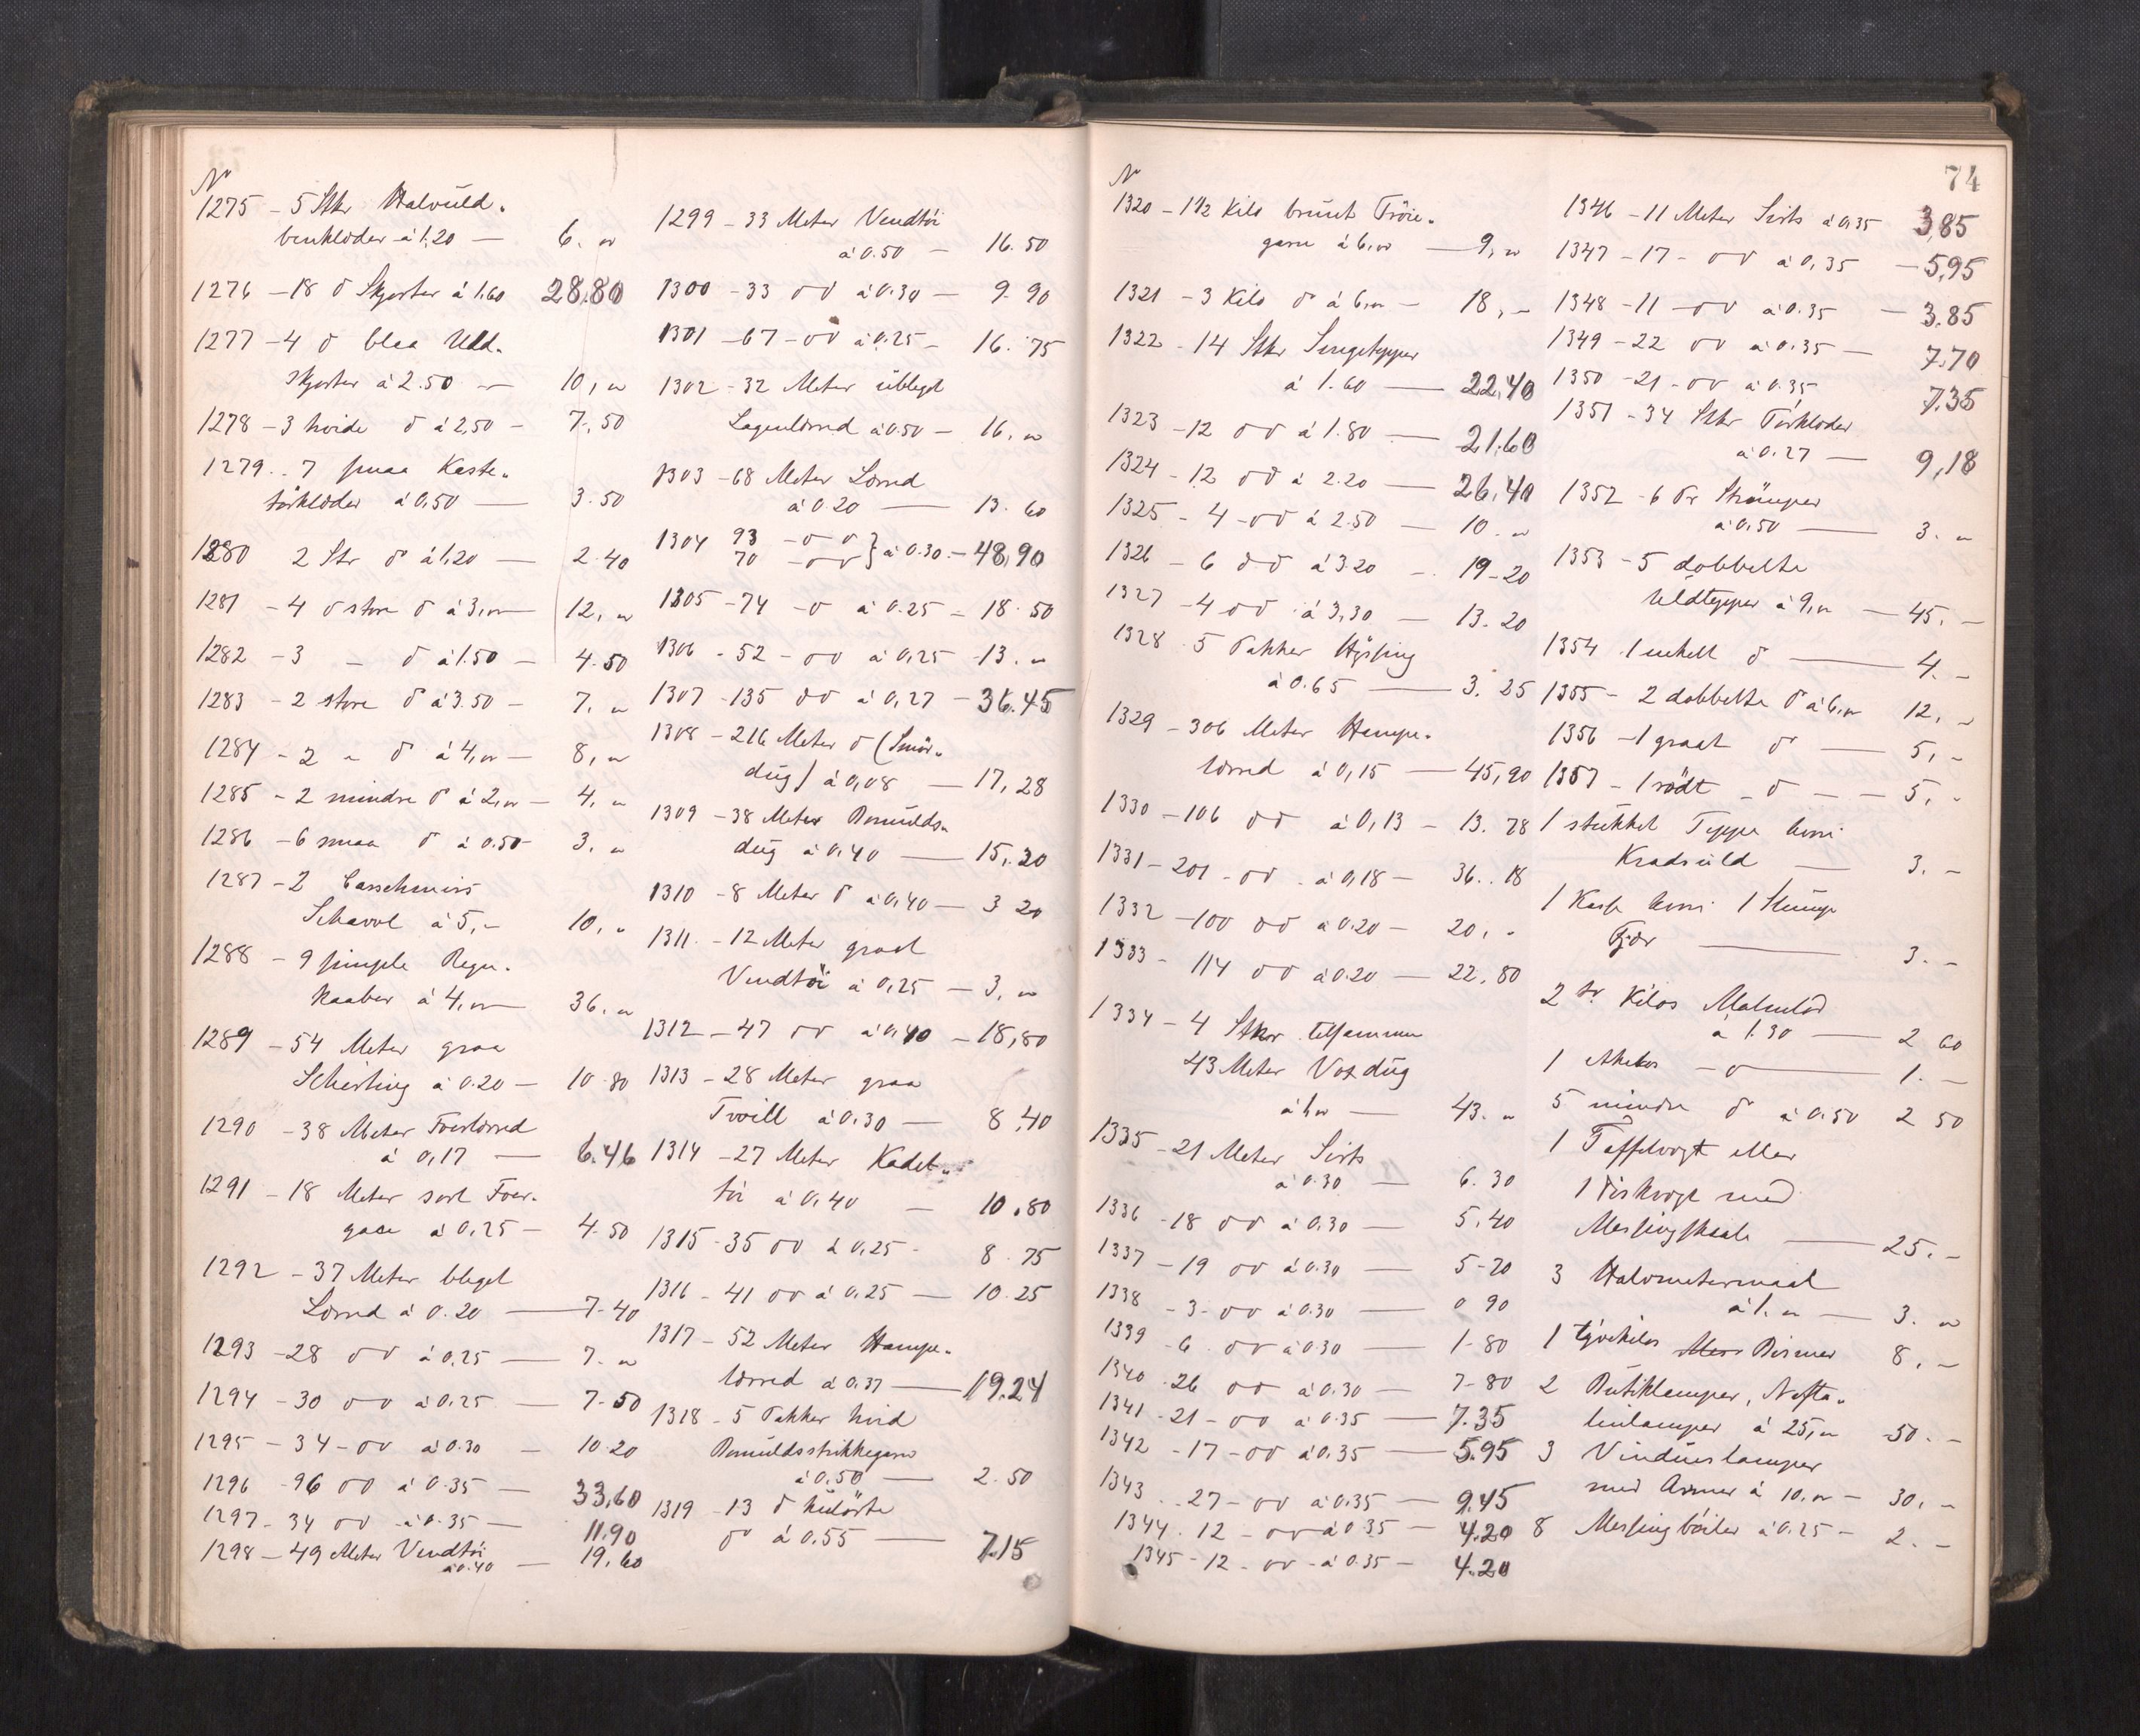 No
1275 - 5 Stkr Halvuld-
benklæder à 1,20 — 6. "
1276 - 18 do Skjorter à 1.60 28,80
1277 - 4 do blaa Uld-
skjorter à 2.50 — 10, "
1278 - 3 hvide do à 2,50 - 7,50
1279 - 7 smaa Kaste-
tørklæder à 0,50 — 3.50
1280 2 Stk do à 1,20 — 2.40
1281 - 4 do store do à 3," — 12, "
1282 - 3 - do à 1.50 - 4.50
1283 - 2 store do à 3.50 - 7. "
1284 - 2 " do à 4," — 8, "
1285 - 2 mindre do à 2," — 4, "
1286 - 6 smaa do à 0.50 - 3. "
1287 - 2 Casschmirs
Schavel à 5,- 10, "
1288 - 9 simple Regn-
kaaber à 4," — 36. "
1289 - 54 Meter graa
Schirting à 0.20 — 10.80
1290 - 38 Meter Foerlærred
à 0,17 — 6.46
1291 - 18 Meter sort Foer-
gaze à 0,25 - 4.50
1292 - 37 Meter bleget
Lærred à 0.20 — 7.40
1293 - 28 do do à 0,25 — 7. "
1294 - 30 do do à 0.25 — 7.50
1295 - 34 - do do à 0.30 - 10.20
1296 - 96 do do à 0.35 — 33,60
1297 - 34 do do à 0.35 — 11.90
1298 - 49 Meter Vendtøi
à 0.40 — 19.60
1299 - 33 Meter Vendtøi
à 0.50 - 16.50
1300 - 33 do do à 0.30 — 9.90
1301 - 67 - do do à 0.25 - 16.75
1302 - 32 Meter ubleget
Lagenlærred à 0.50 - 16. "
1303 - 68 Meter Lærred
à 0.20 — 13.60
1304 93 - do do } à 0.30 - 48,90
70 - do do
1305 - 74 - do à 0.25 - 18.50
1306 - 52 - do do à 0,25 - 13. "
1307 - 135 do do à 0,27 - 36.45
1308 - 216 Meter do (Smør-
dug) à 0,08 — 17,28
1309 - 38 Meter Bomulds-
dug à 0,40 — 15,20
1310 - 8 Meter do à 0,40 — 3 20
1311 - 12 Meter graat
Vendtøi à 0,25 — 3, "
1312 - 47 do do à 0,40 - 18,80
1313 - 28 Meter graa
Tvoill à 0,30 — 8,40
1314 - 27 Meter Kadet-
tøi à 0,40 — 10.80
1315 - 35 do do à 0,25 - 8.75
1316 - 41 do do à 0,25 — 10.25
1317 - 52 Meter Hampe-
lærred à 0,37 — 19.24
1318 - 5 Pakker hvid
Bomuldsstrikkegarn
à 0,50 — 2.50
1319 - 13 do kulørte
do à 0.55 — 7.15
74
No
1320 - 1 1/2 Kilo brunt Trøie-
garn à 6," — 9, "
1321 - 3 Kilo do à 6," - 18, -
1322 - 14 Stkr Sengetepper
à 1.60 — 22,40
1323 - 12 do do à 1.80 — 21.60
1324 - 12 do do à 2.20 — 26,40
1325 - 4 - do do à 2.50 — 10. "
1326 - 6 do do à 3.20 - 19-20
1327 - 4 do do à 3,30 — 13.20
1328 5 Pakker Hyssing
à 0.65 — 3.25
1329 - 306 Meter Hampe-
lærred à 0,15 — 45,90
1330 - 106 do do à 0,13 - 13.78
1331 - 201 - do do à 0,18 - 36.18
1332 - 100 do do à 0.20 - 20, "
1333 - 114 do do à 0.20 — 22,80
1334 - 4 Stkr tilsammen
43 Meter Voxdug
à 1," — 43. "
1335 - 21 Meter Sirts
à 0.30 — 6.30
1336 - 18 do do à 0,30 — 5.40
1337 - 19 do do à 0.30 — 5-70
1338 - 3 - do do à 0.30 — 0 90
1339 - 6 do do à 0.30 — 1-80
1340 - 26 do do à 0,30 - 7-80
1341 - 21 - do do à 0.35 — 7.35
1342 - 17 - do do à 0,35 — 5.95
1343 - 27 - do do à 0.35 — 9.45
1344 - 12 - do do à 0.35 — 4.20
1345 - 12 - do do - à 0.35 - 4.20
1346 - 11 Meter Sirts à 0,35 3,85
1347 - 17 - do do à 0,35 — 5,95
1348 - 11 - do do à 0.35 — 3.85
1349 - 22 do do à 0.35 — 7.70
1350 - 21 - do do à 0.35 7.35
1351 - 34 Stkr Tørklæder
à 0.27 — 9,18
1352 - 6 Pr Strømper
à 0,50 — 3. "
1353 - 5 dobbelte
Uldtepper à 9," — 45. -
1354 1 enkelt do — 4. -
1355 - 2 dobbelte do à 6," 12, -
1356 - 1 graat do — 5, -
1357 - 1 rødt - do — 5, -
1 stukket Teppe hvori
Kradsuld — 3. -
1 Kasse hvori 1 Slump
Fjær — 3. -
2 Kilos Malmlod
à 1.30 — 2 60
1 - do — 1. -
5 mindre do à 0.50 2 50
1 Taffelvægt eller
1 Diskvægt med
Messingskaale — 25. -
3 Halvmetermaal
à 1. " — 3. "
1 tyvekilos Mess Bismer 8, -
2 Butiklamper, Nafta-
linlamper à 25," 50. -
3 Vinduslamper
med Armer à 10," — 30, -
8 Messingbøiler à 0.25 - 2. -